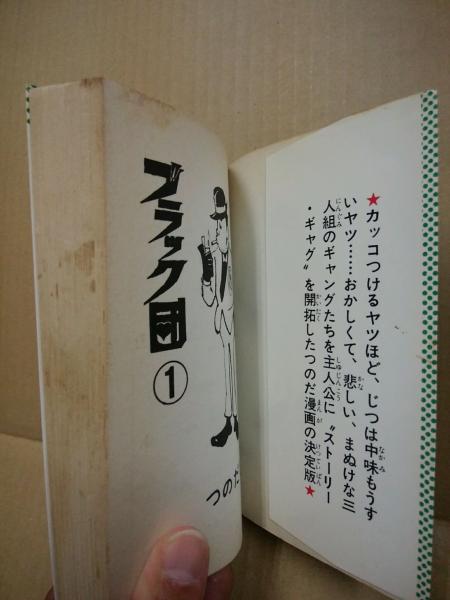 ★カッコつけるヤツほど、じつは中味もうす
いヤツ……おかしくて、悲しい、まぬけな三
人組のギャングたちを主人公に〝ストーリー
・ギャグ〟を開拓したつのだ漫画の決定版★
ブラック団①
つのだ